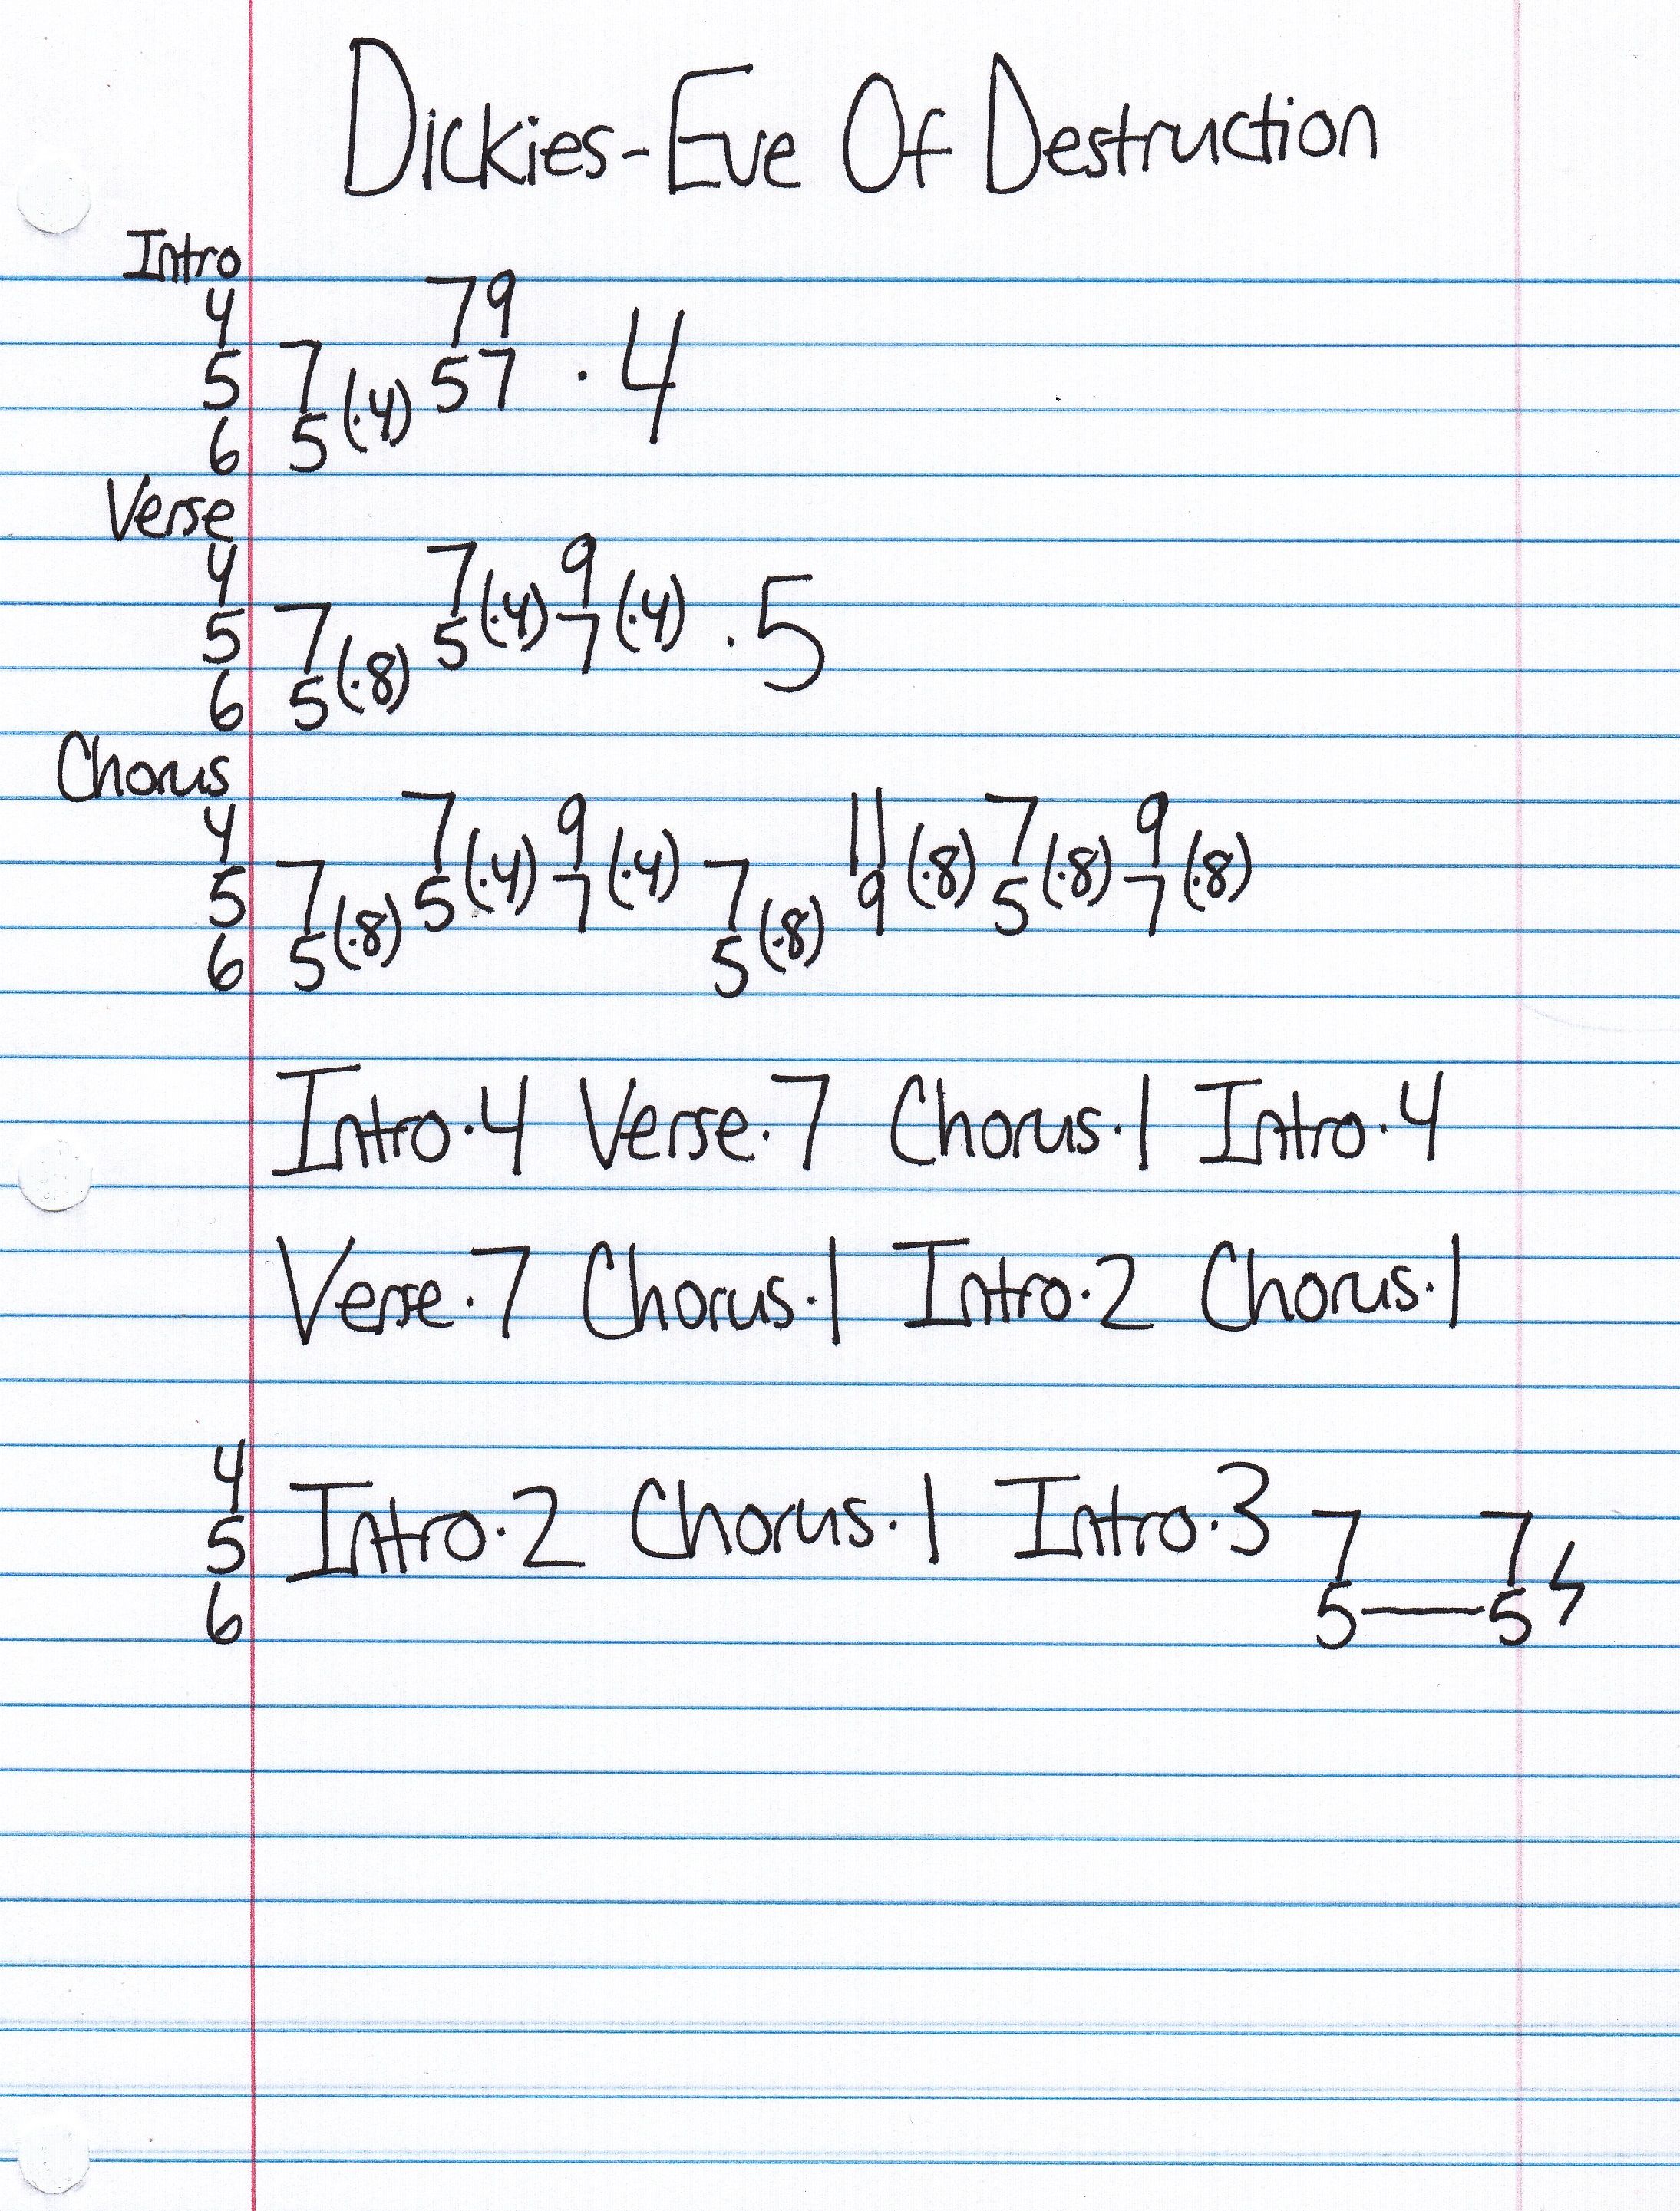 Dickies-Eve Of Destruction
Intro
4 79
5 7 (·4) 57 ·4
6 5
Verse
4 7 (·4) 9 (·4)
5 7 (·8) 5 7 ·5
6 5
Chorus
4 7 (·4) 9 (·4) 11 (·8) 7 (·8) 9 (·8)
5 7 (·8) 5 7 7 (·8) 9 5 7
6 5 5
Intro·4 Verse·7 Chorus·1 Intro·4
Verse·7 Chorus·1 Intro·2 Chorus·1
4
5 Intro·2 Chorus·1 Intro·3 7 7
6 5—5